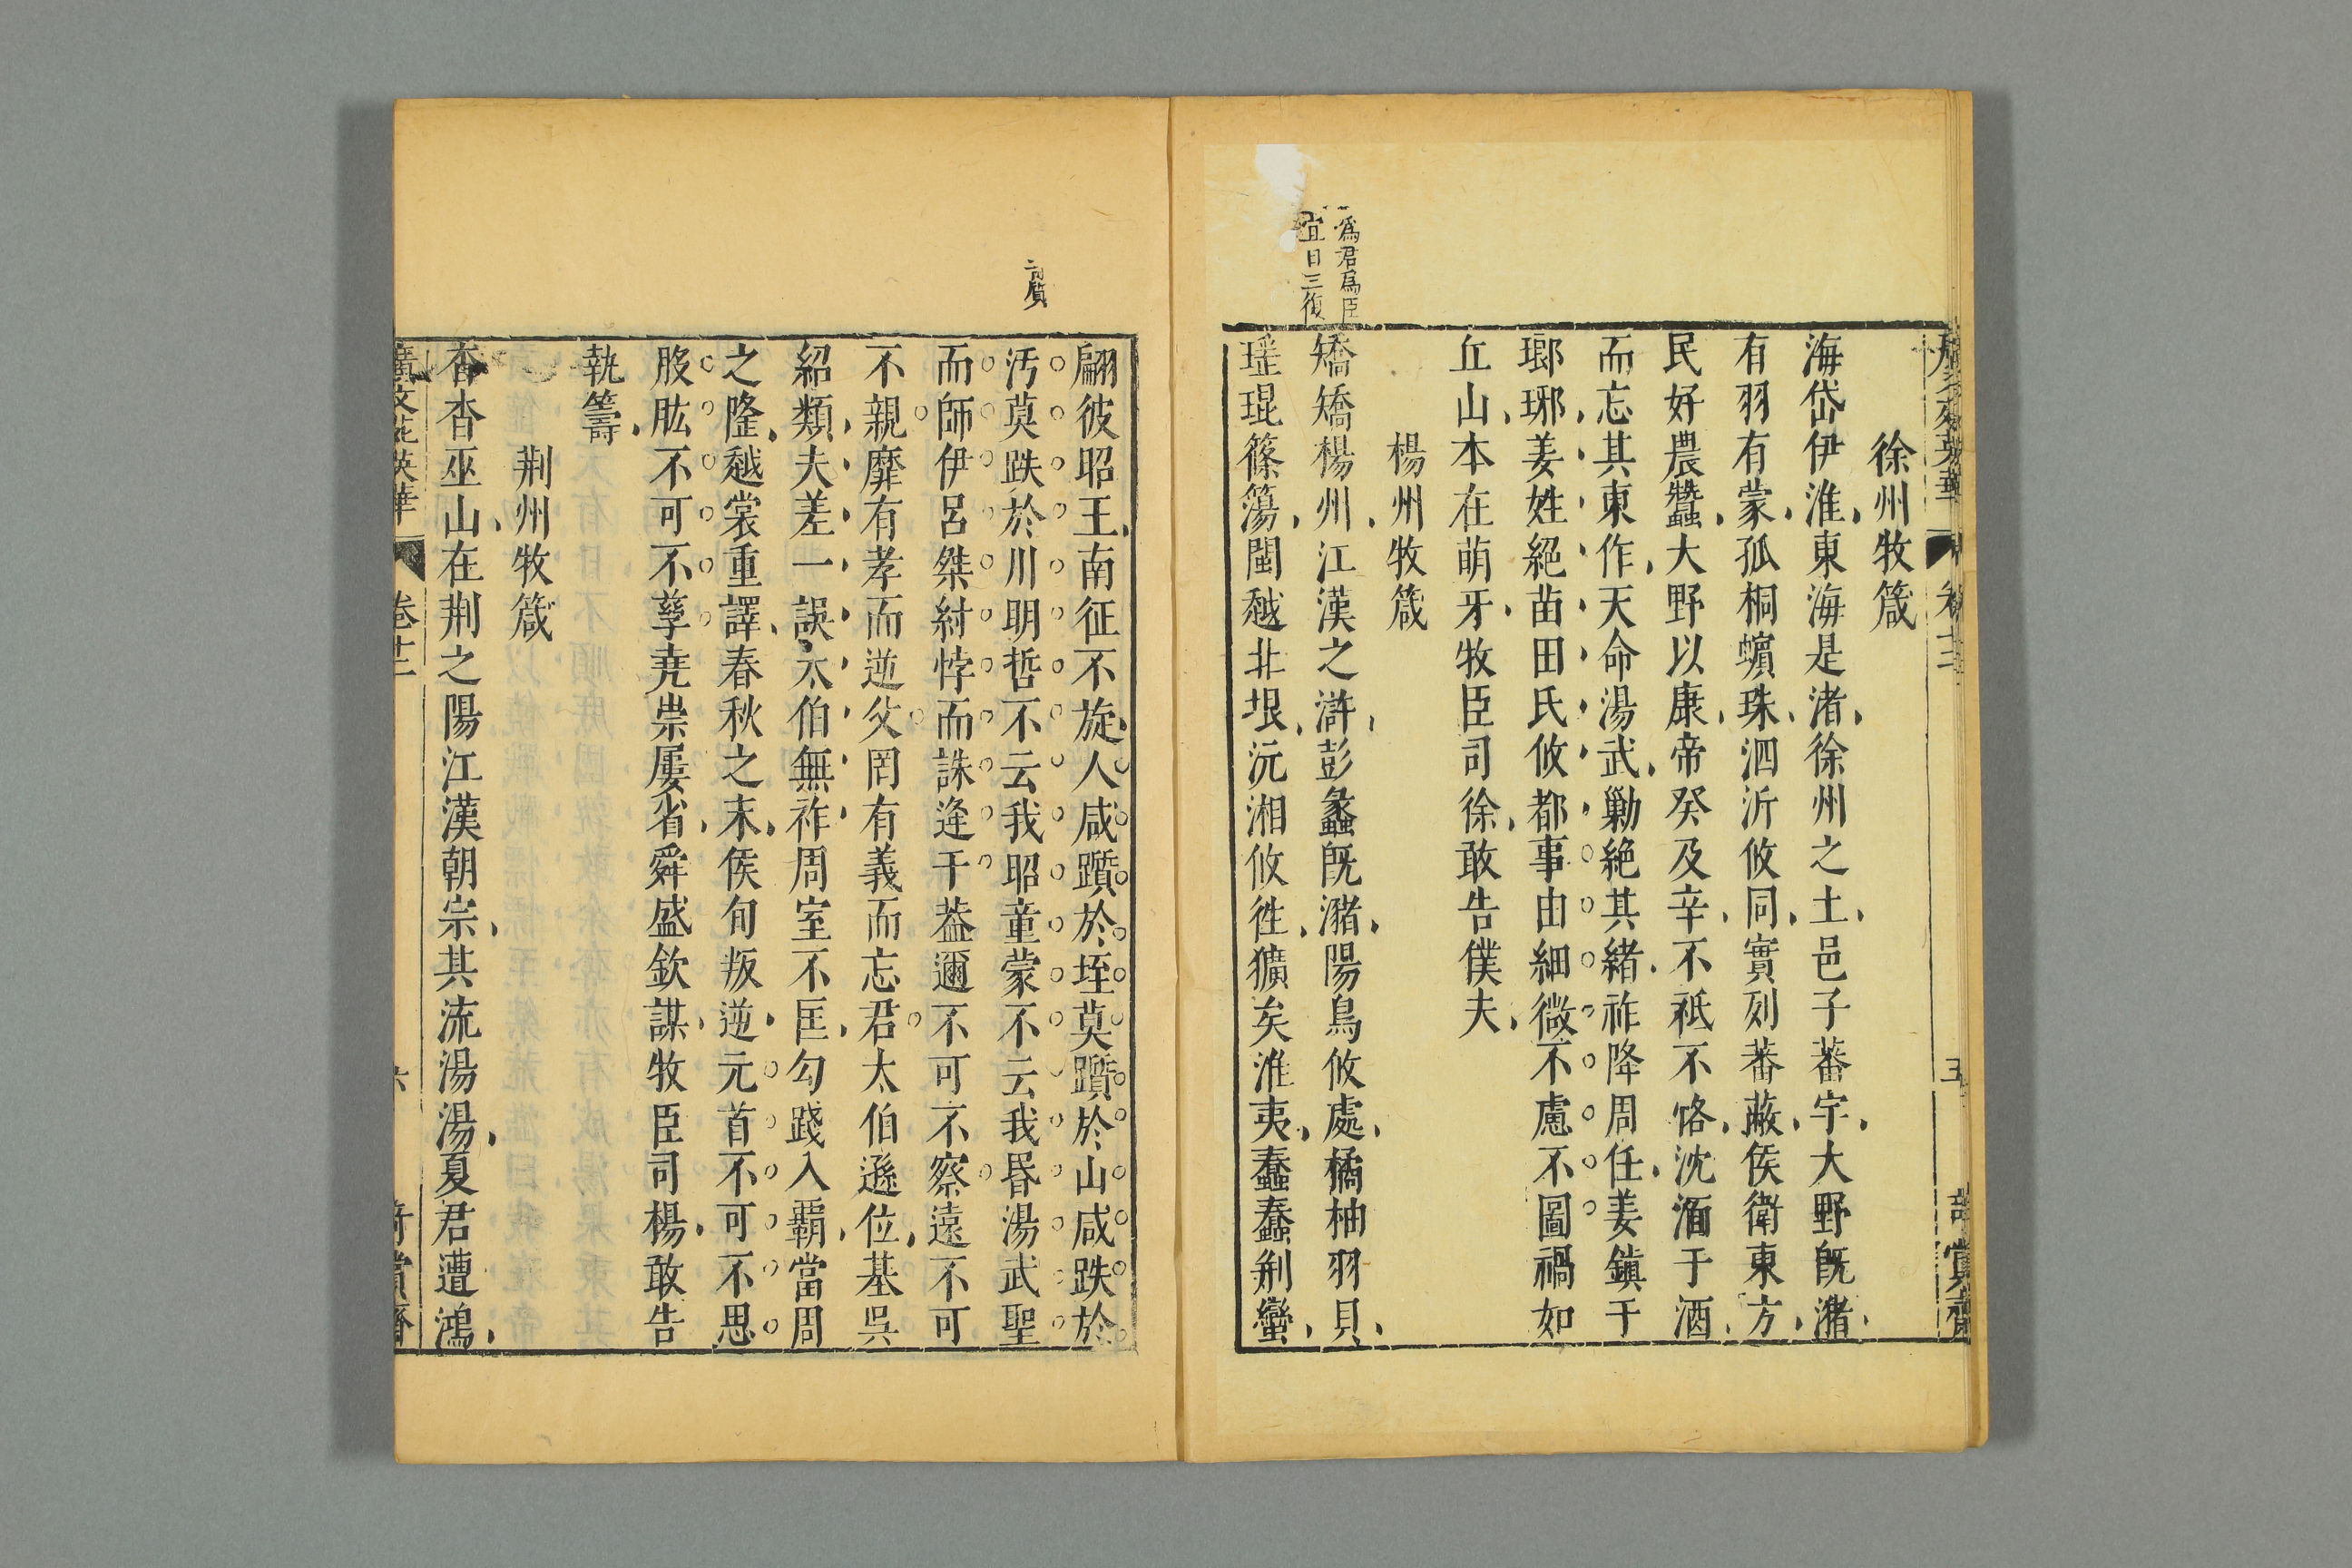 徐州牧箴
海岱伊淮東海是渚徐州之土邑子蕃宇大野既瀦
有羽有蒙孤桐蠙珠泗沂攸同實列蕃蔽侯衛東方
民好農蠶大野以康帝癸及辛不祇不恪沈湎于酒
而忘其東作天命湯武勦絕其緒祚降周任姜鎮于
瑯琊姜姓絕苗田氏攸都事由細微不慮不圖禍如
丘山本在萌牙牧臣司徐敢告僕夫
楊州牧箴
為君為臣
宜日三復
矯矯楊州江漢之滸彭蠡既瀦陽鳥攸處橘柚羽貝
瑶琨篠簜閩越北垠沅湘攸徃獷矣淮夷蠢蠢荆蠻
翩彼昭王南征不旋人咸躓於垤莫躓於山咸跌於
汚莫跌於川明哲不云我昭童蒙不云我昬湯武聖
而師伊呂桀紂悖而誅逄干葢邇不可不察遠不可
不親靡有孝而逆父罔有義而忘君太伯遜位基吳
紹類夫差一誤太伯無祚周室不匡勾踐入霸當周
之隆越裳重譯春秋之末侯旬叛逆元首不可不思
股肱不可不孳尭崇屢省舜盛欽謀牧臣司楊敢告
執籌
荆州牧箴
杳杳巫山在荆之陽江漢朝宗其流湯湯夏君遭鴻
廣文苑英華